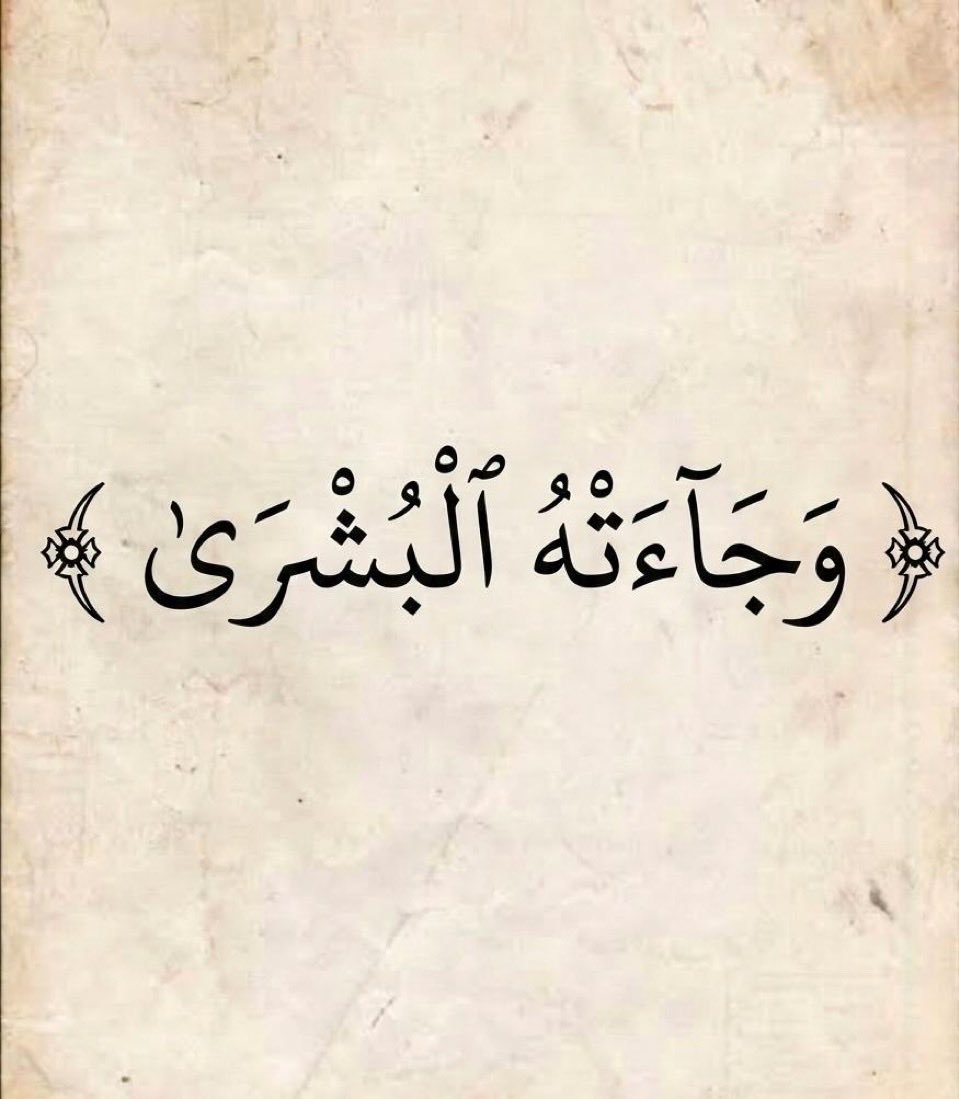 ﴿ وَجَآءَتْهُ ٱلْبُشْرَىٰ ﴾